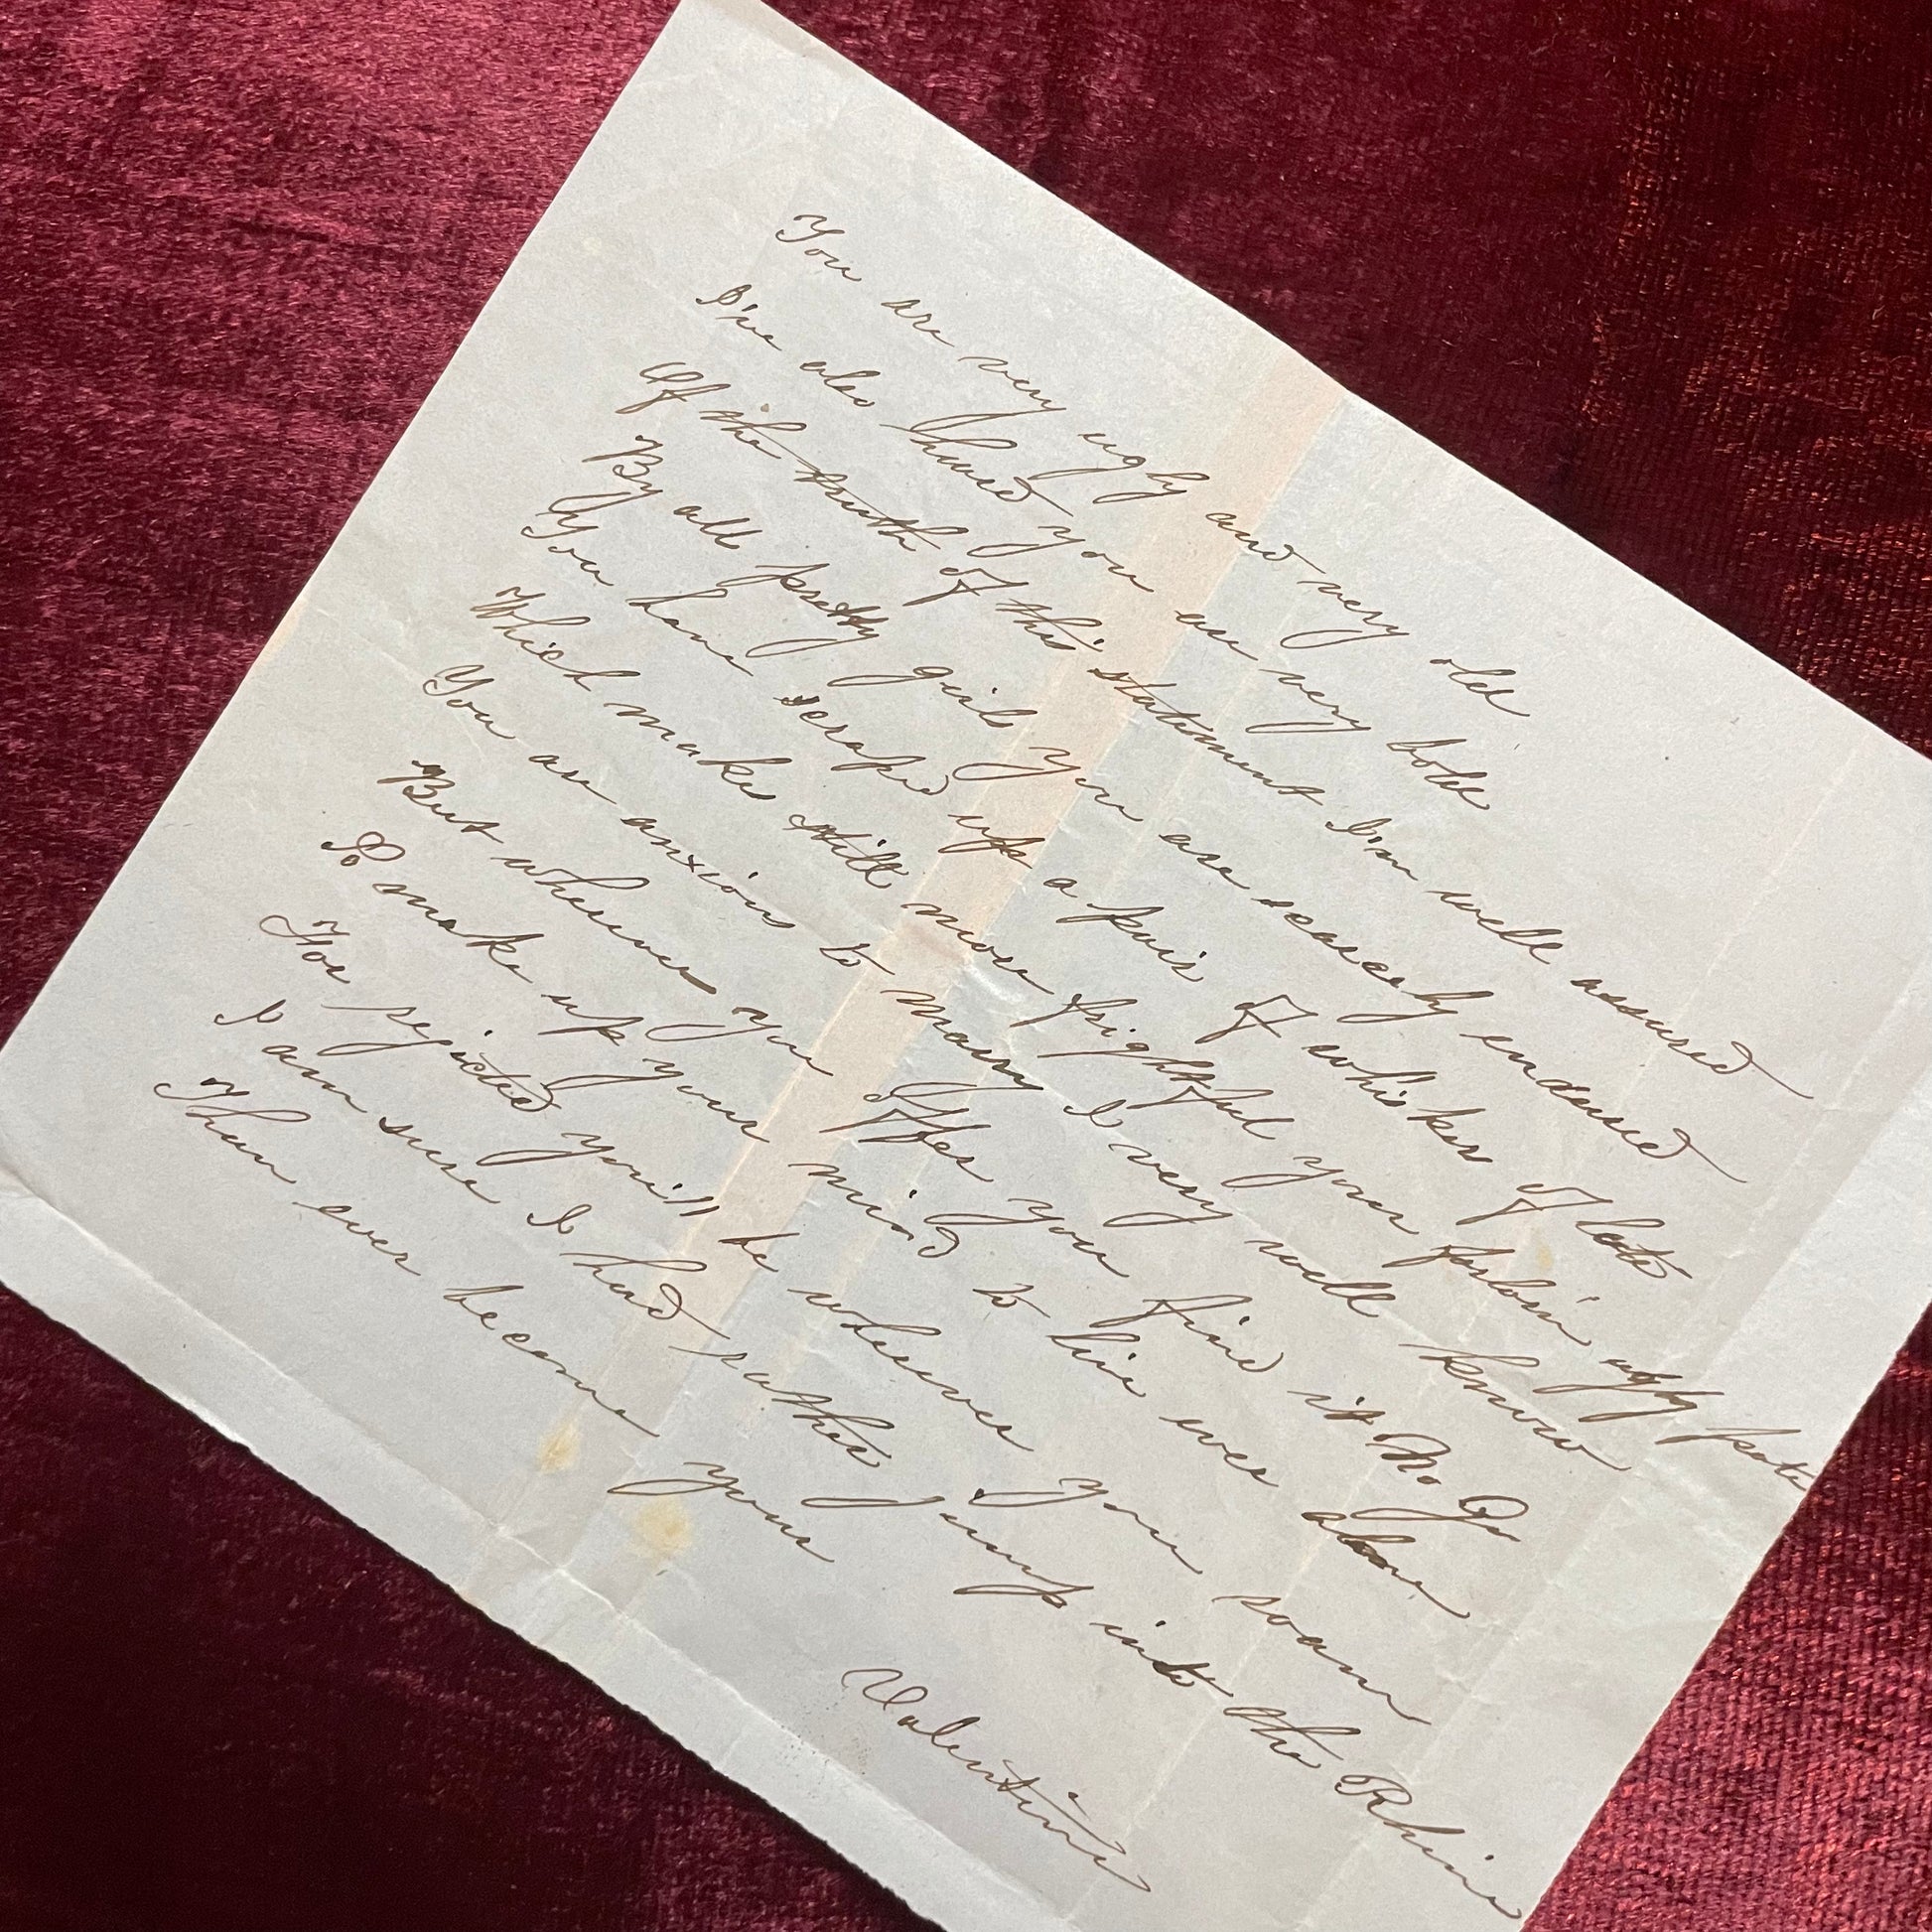 You are very ugly and very old
I've also heard you are very bold
Of the truth of this statement I'm well assured
By all pretty girls you are scarcely endured
You have scraped up a pair of whiskers of late
Which makes still more frightful your forlorn ugly pate
You are anxious to marry I very well know
But whenever you offer you find it No Go
So make up your mind to live ever alone
For rejected you'll be wherever you roam
I am sure I had rather jump into the Rhine
Than ever become
your
Valentine